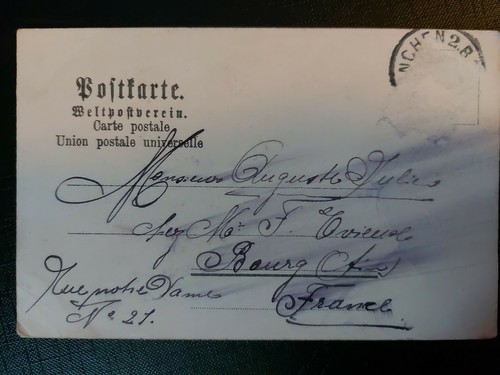 NCHEN 2. B.
Postkarte.
Weltpostverein.
Carte postale
Union postale universelle
Monsieur Auguste
chez Mr F.
Bourg (Ain)
Rue notre Dame
France
No 21.